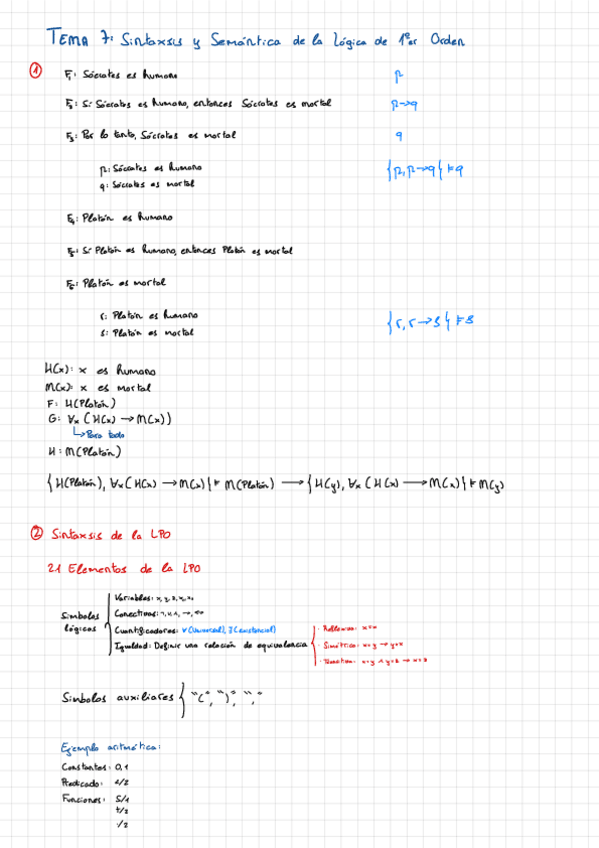 TEMA 7: Sintaxsis y Semántica de la Lógica de 1er Orden
① F₁: Sócrates es humano p
F₂: Si Sócrates es humano, entonces Sócrates es mortal p→q
F₃: Por lo tanto, Sócrates es mortal q
p: Sócrates es humano {p, p→q} ⊨ q
q: Sócrates es mortal
F₄: Platón es humano
F₅: Si Platón es humano, entonces Platón es mortal
F₆: Platón es mortal
r: Platón es humano {r, r→s} ⊨ s
s: Platón es mortal
H(x): x es humano
M(x): x es mortal
F: H(Platón)
G: ∀x (H(x) → M(x))
↳ Para todo
H: M(Platón)
{H(Platón), ∀x (H(x) → M(x))} ⊨ M(Platón) → {H(y), ∀x (H(x) → M(x)} ⊨ M(y)
② Sintaxsis de la LPO
2.1 Elementos de la LPO
Símbolos lógicos
Variables: x, y, z,
Conectivas: ¬, ∨, ∧, →, ↔
Cuantificadores: ∀ (Universal), ∃ (existencial)
Igualdad: Definir una relación de equivalencia
· Reflexiva: x=x
· Simétrica: x=y → y=x
· Transitiva: x=y ∧ y=z → x=z
Símbolos auxiliares { "(", ")", ","
Ejemplo aritmética:
Constantes: 0, 1
Predicado: /2
Funciones: S/1
+/2
·/2